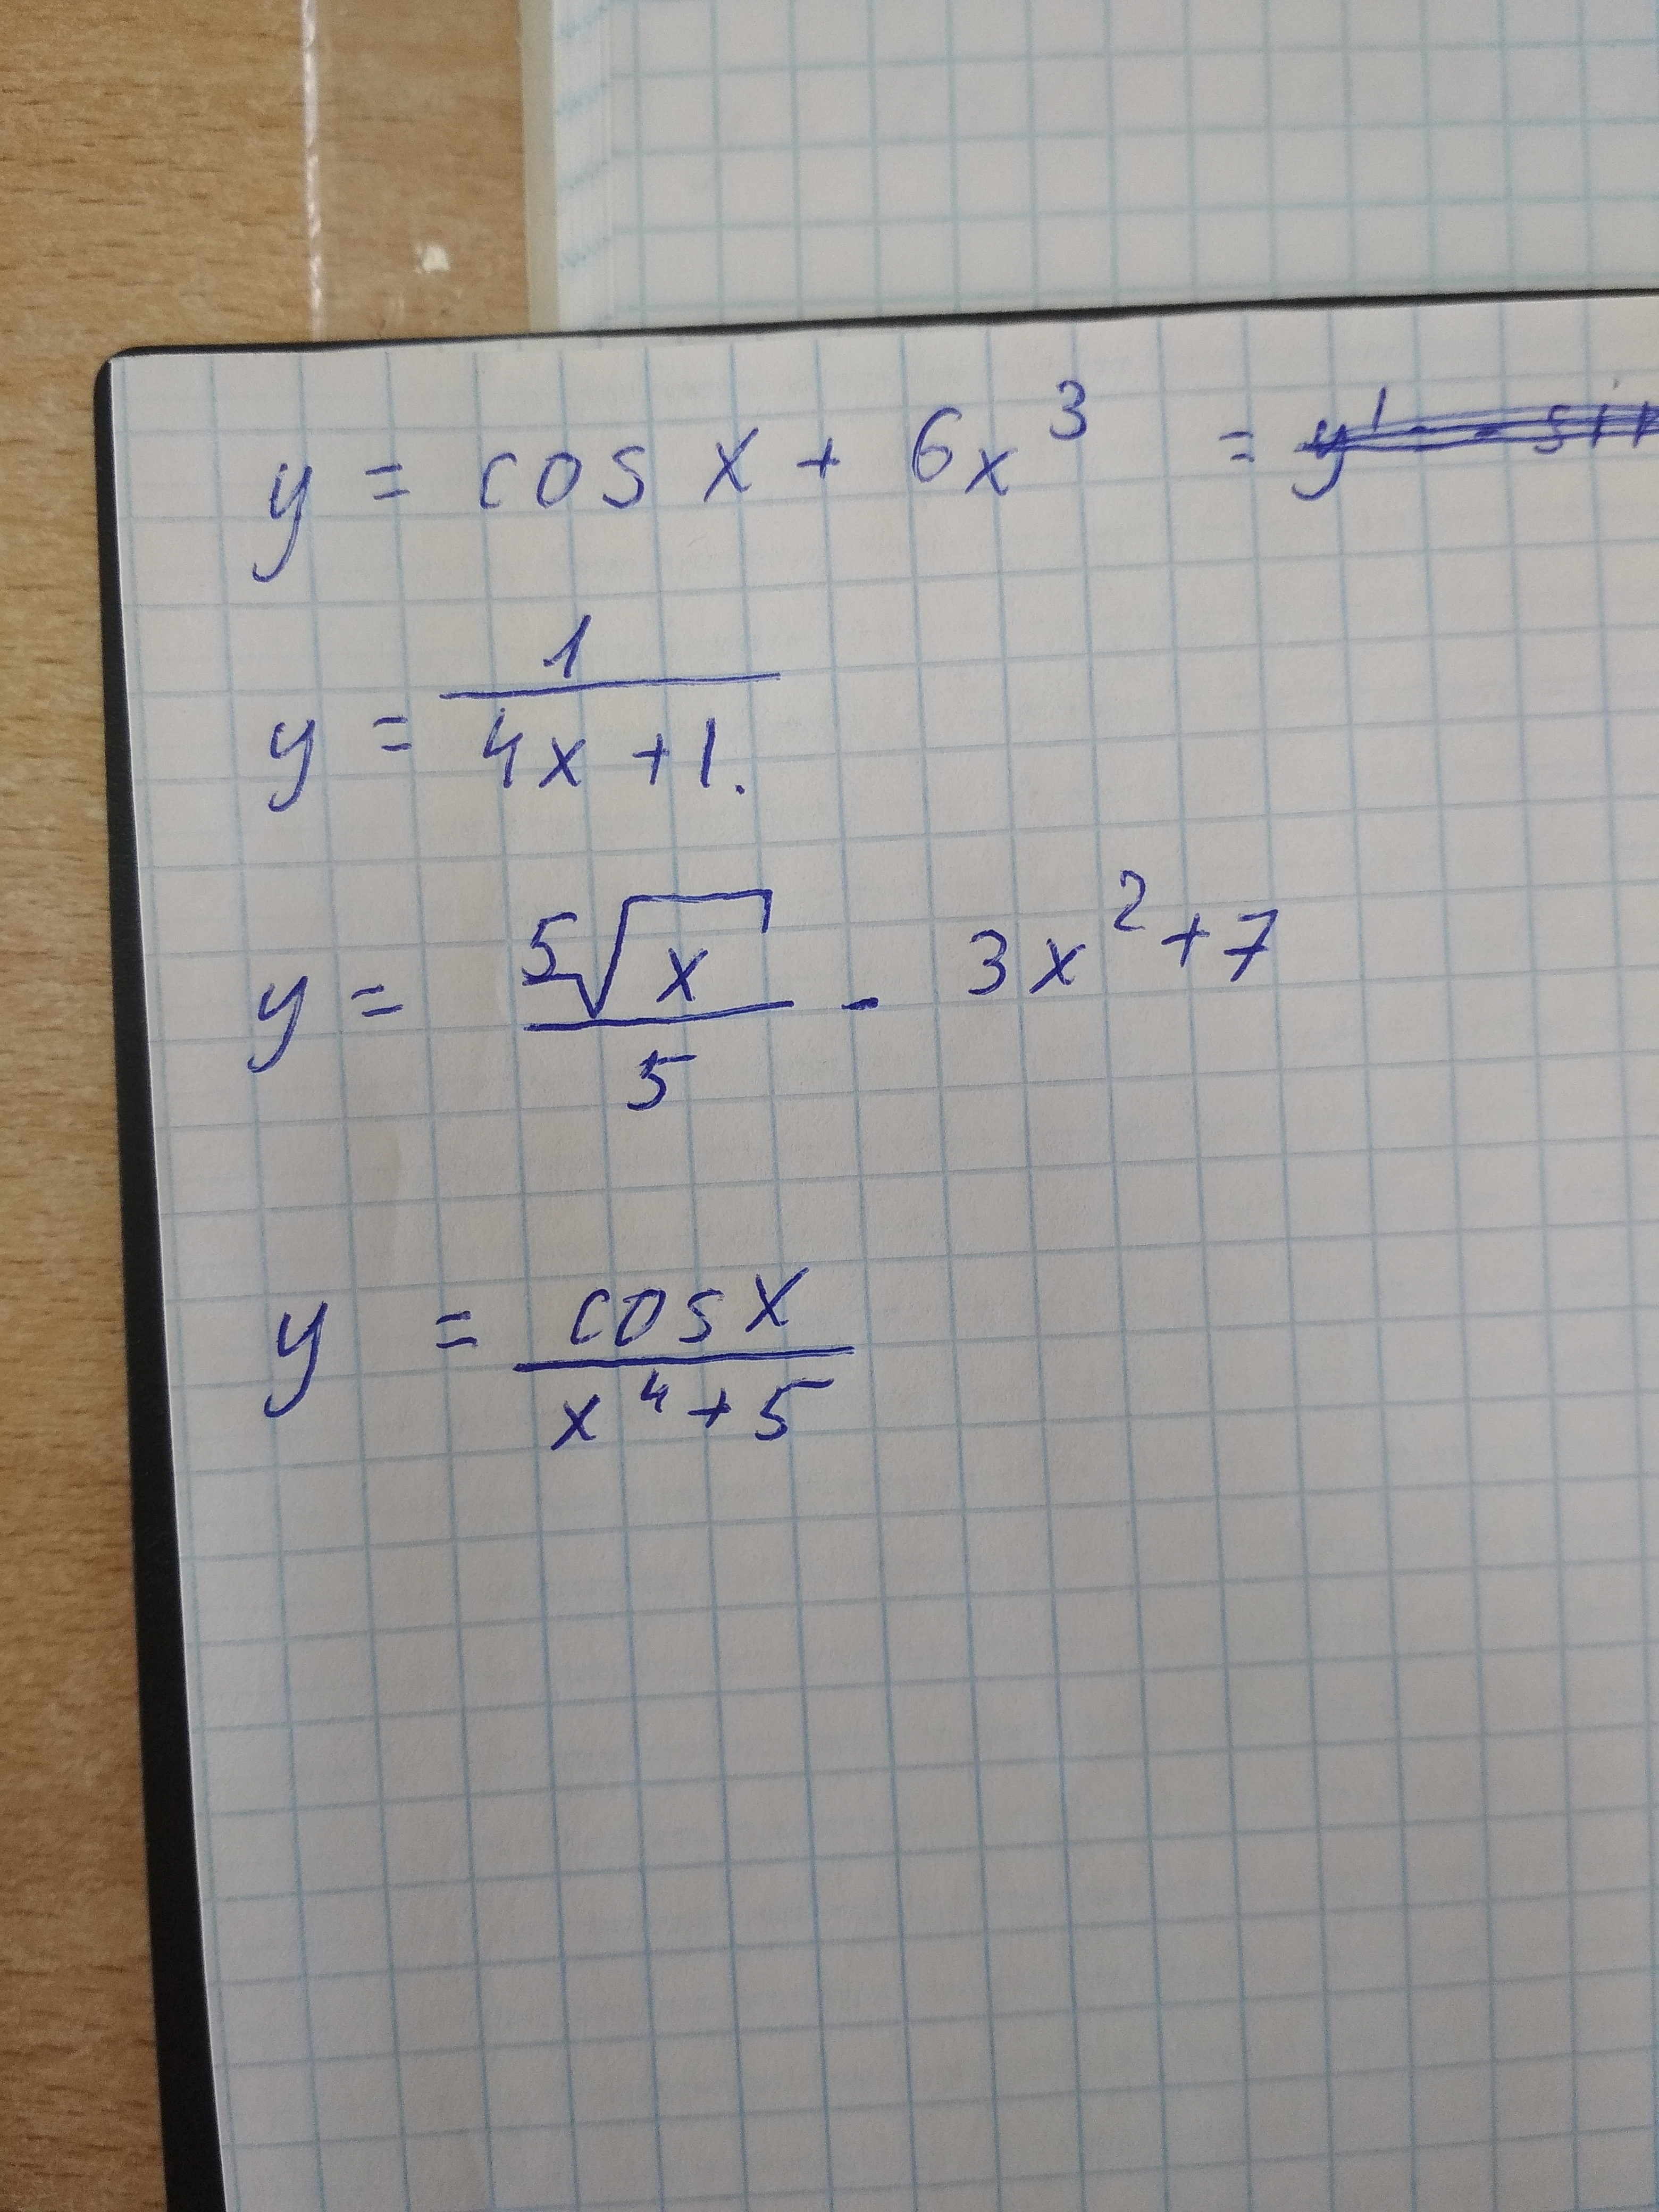 y = cos x + 6x³ =
y = 1/(4x + 1.
y = ⁵√x/5 - 3x² + 7
y = cos x/(x⁴ + 5)